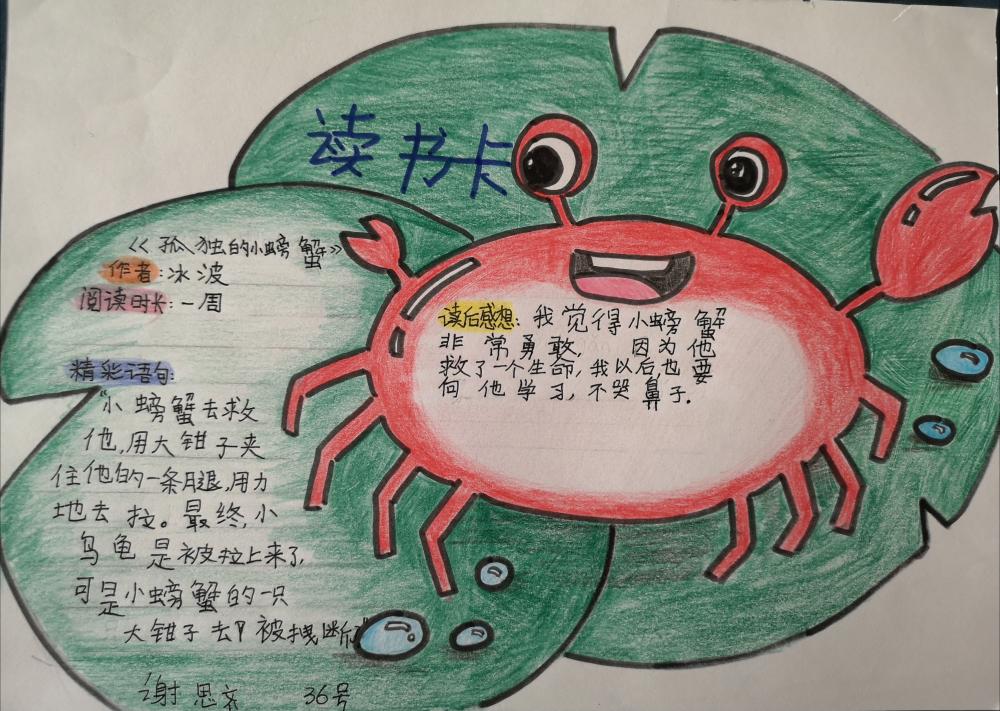 读书卡
《孤独的小螃蟹》
作者:冰波
阅读时长:一周
精彩语句:
"小螃蟹去救
他,用大钳子夹
住他的一条腿,用力
地去拉。最终,小
乌龟是被拉上来了,
可是小螃蟹的一只
大钳子却被拽断了"
谢思 36号
读后感想:我觉得小螃蟹
非常勇敢,因为他
救了一个生命,我以后也要
向他学习,不哭鼻子.